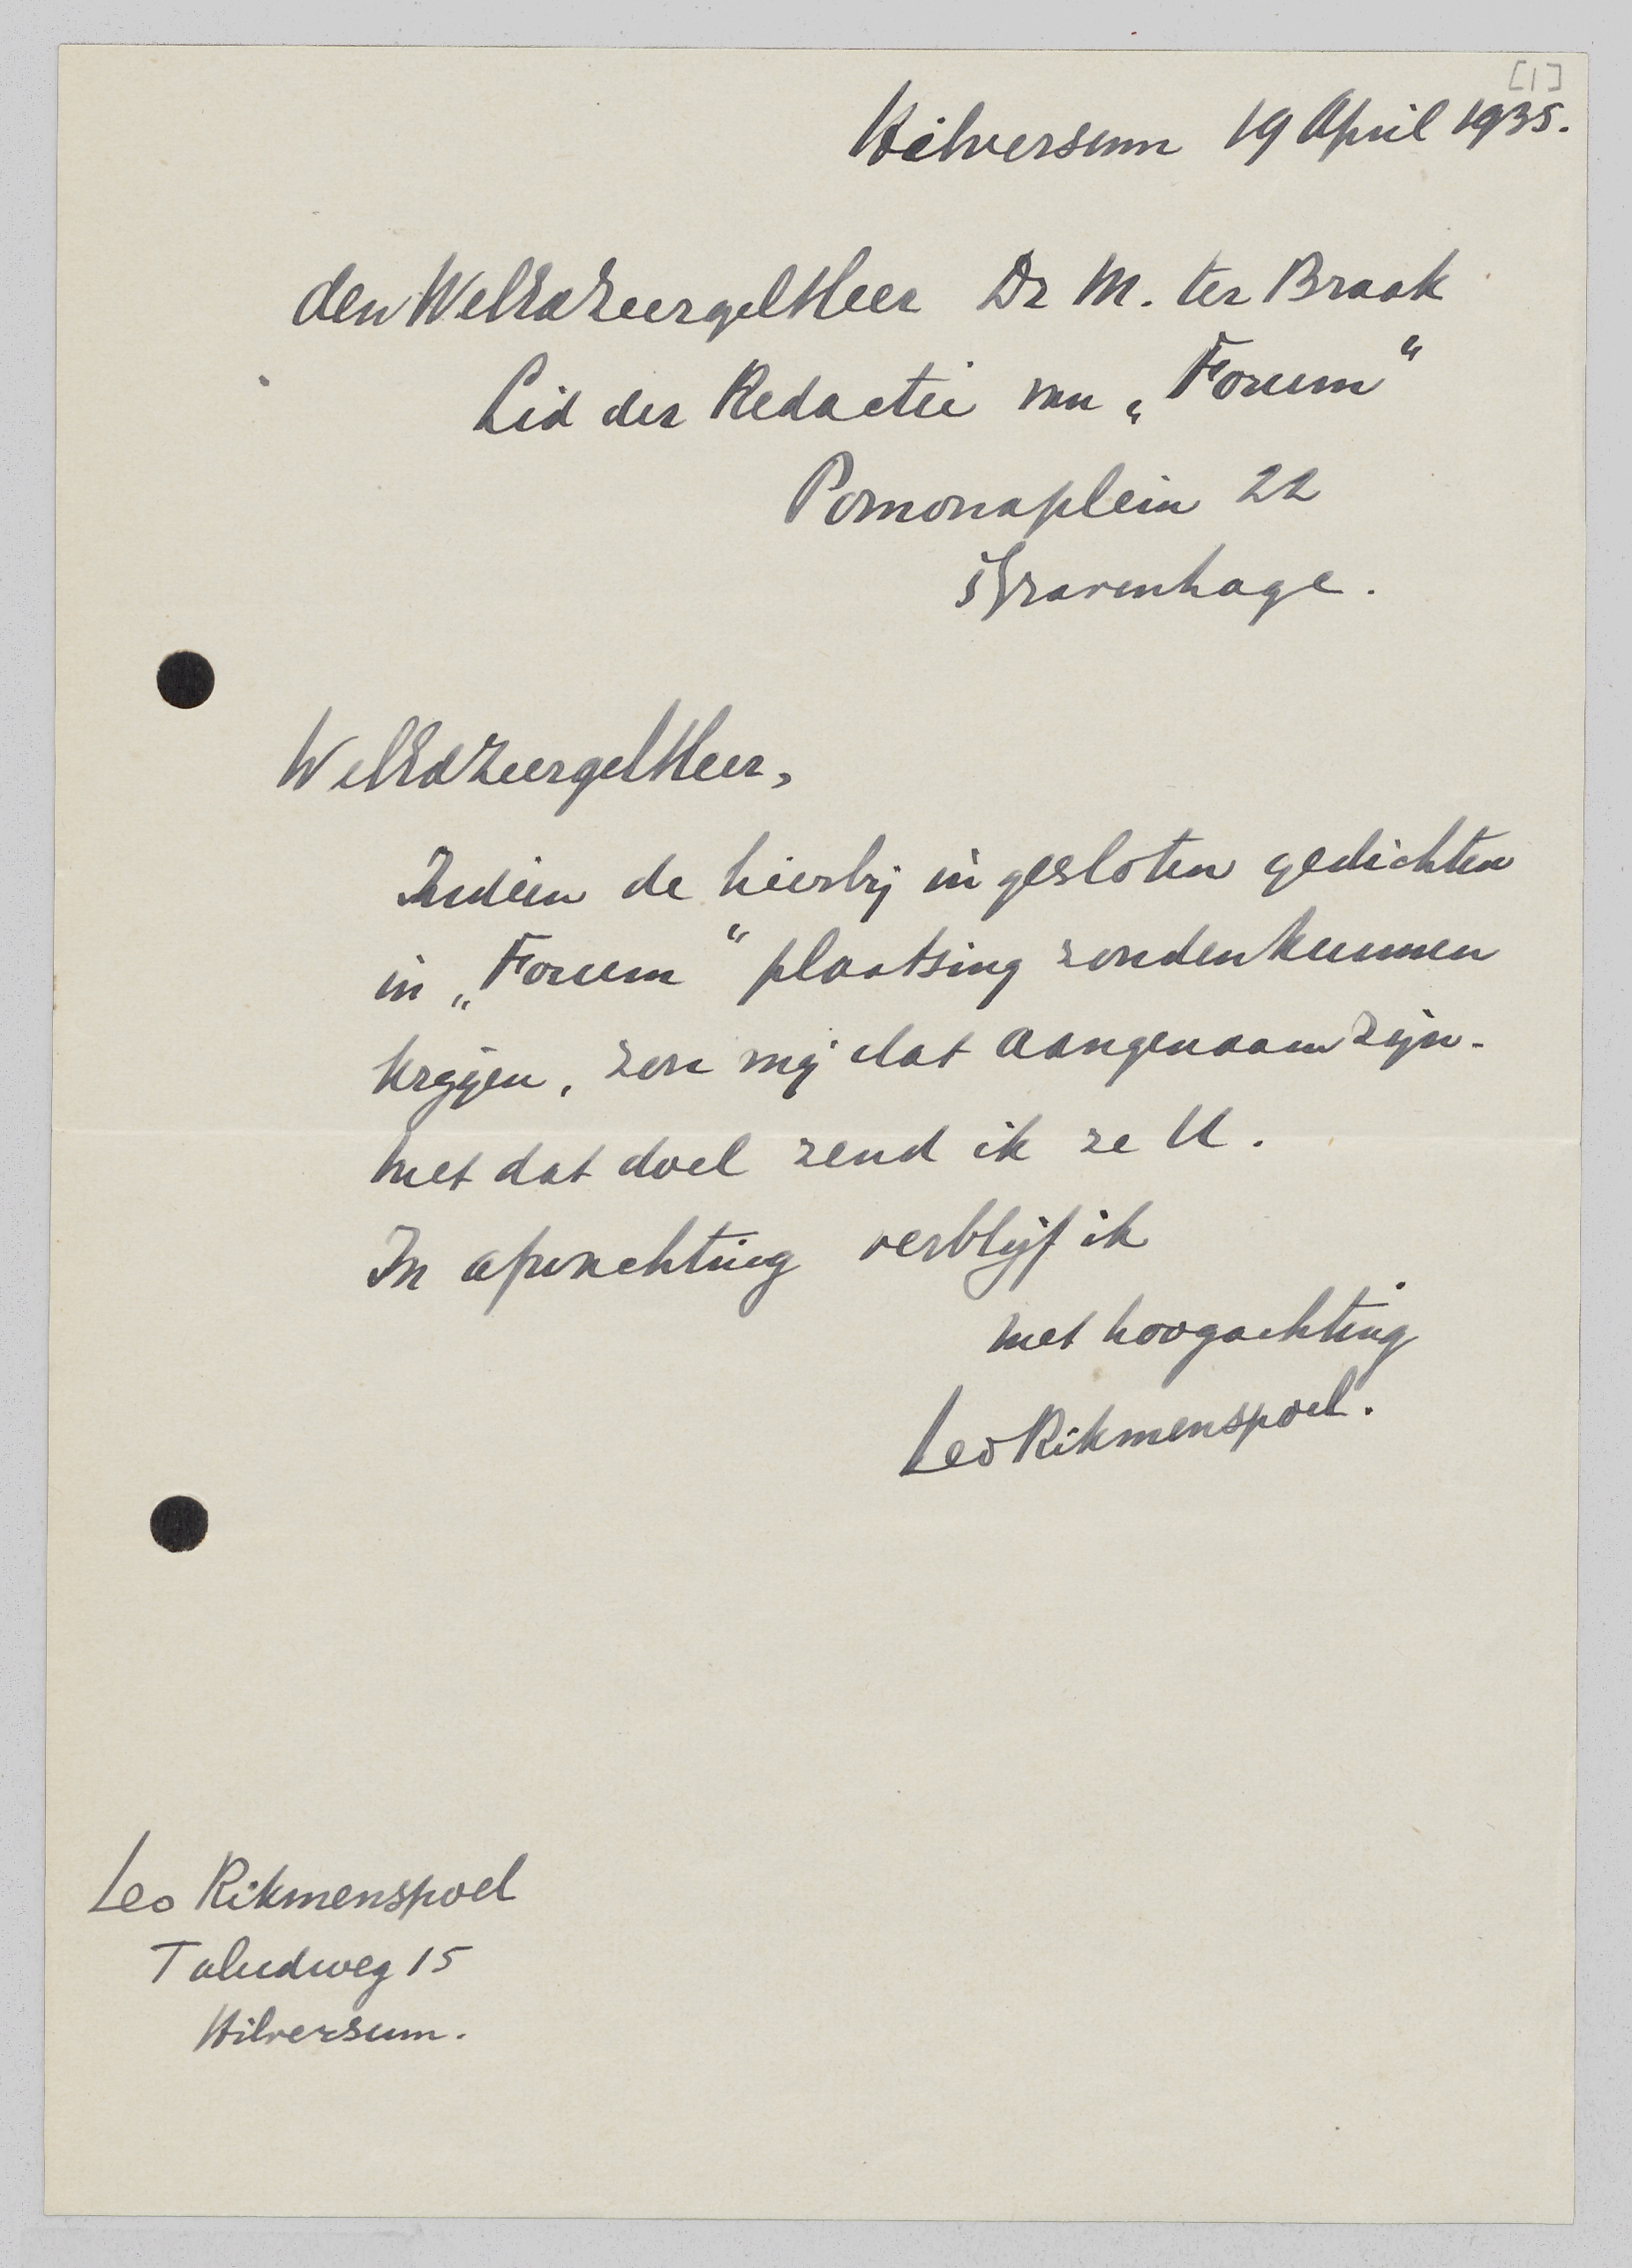 [1]
Hilversum 19 April 1935.
den WelEdZeergelHeer Dr M. ter Braak
Lid der Redactie van „Forum“
Pomonaplein 22
's Gravenhage.
WelEdZeergelHeer,
Indien de hierbij ingesloten gedichten
in „Forum“ plaatsing zouden kunnen
krijgen, zou mij dat aangenaam zijn.
Met dat doel zend ik ze U.
In afwachting verblijf ik
met hoogachting
Leo Rikmenspoel.
Leo Rikmenspoel
Taludweg 15
Hilversum.